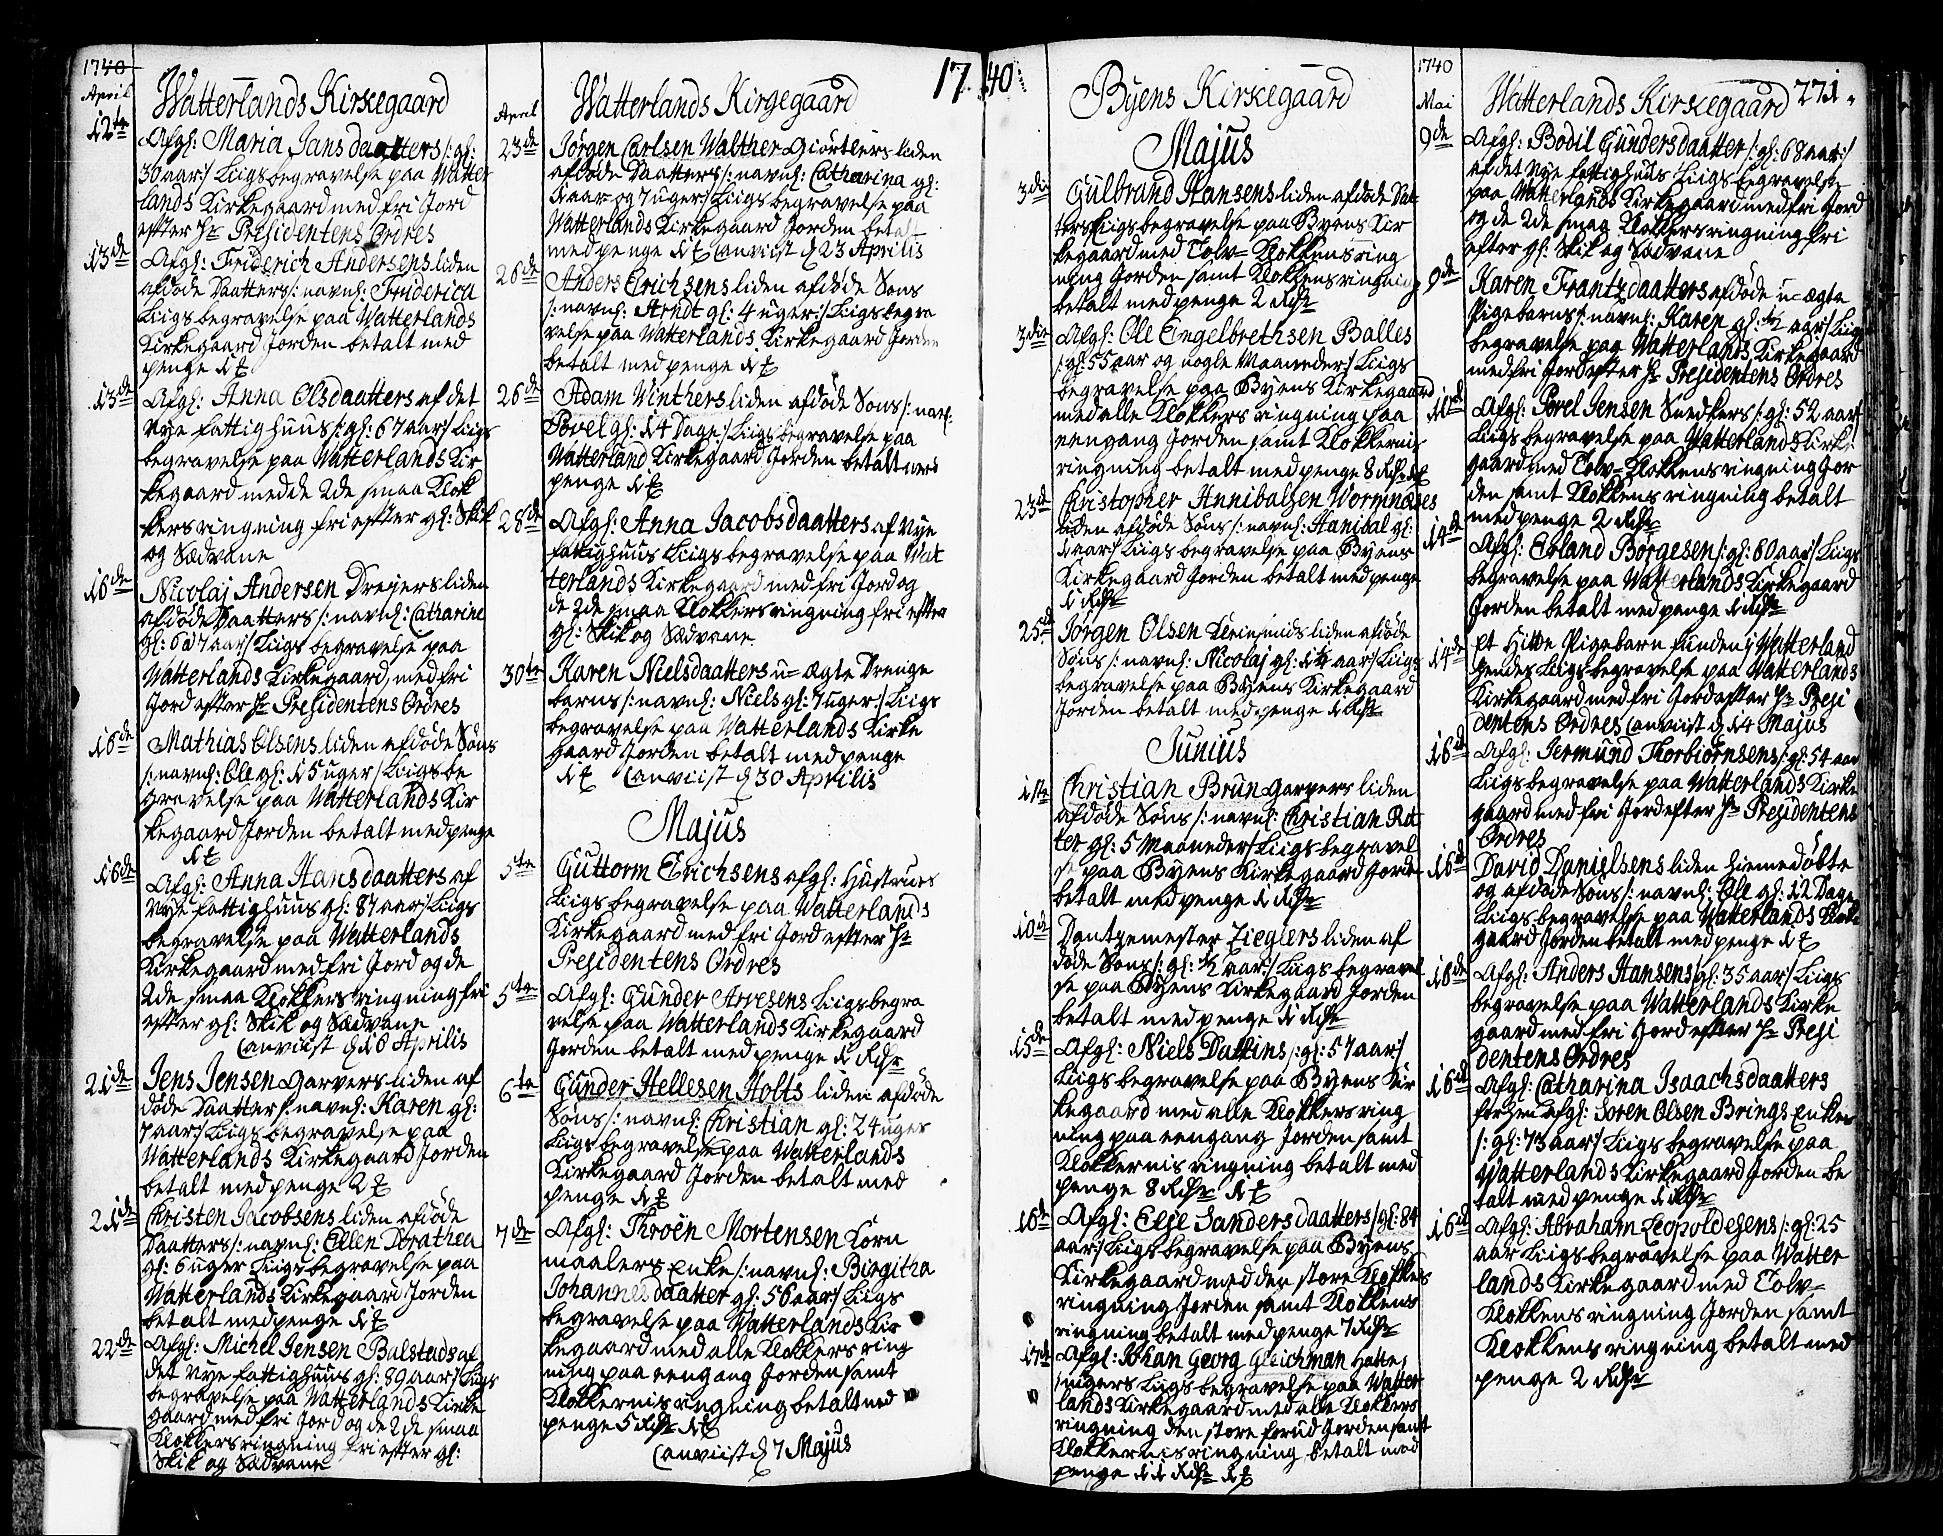 1740
April
Watterlands Kirkegaard
12te
Afgl: Maria Jansdaatters /: gl:
30 aar:/ Liigs begravelse paa Watter
lands Kirkegaard med fri Jord
efter Hr Presidentens Ordres
13de
Afgl: Friderich Andersens liden
afdøde Daatters /: navnl: Friderica
Liigs begravelse paa Watterlands
Kirkegaard Jorden betalt med
penge
13de
Afgl: Anna Olsdaatters af det
Nye fattighuus /: gl: 67 aar:/ Liigs
begravelse paa Watterlands Kir
kegaard med de 2de smaa Klok
kers ringning fri efter gl: Skik
og Sædvane
16de
Nicolaj Andersen Dreyers liden
afdøde Daatters /: navnl: Catharine
gl: 6 a 7 aar:/ Liigs begravelse paa
Watterlands Kirkegaard med fri
Jord efter Hr Presidentens Ordres
16de
Mathias Olsens liden afdøde Søns
/: navnl: Ole gl: 15 uger:/ Liigs be
gravelse paa Watterlands Kir
kegaard Jorden betalt med penge
16de
Afgl: Anna Hansdaatters af
Nye fattighuus gl: 87 aar:/ Liigs
begravelse paa Watterlands
Kirkegaard med fri Jord og de
2de smaa Klokkers ringning fri
efter gl: Skik og Sædvane
Canviist d 16 Aprilis
21de
Jens Jensen Garvers liden af
døde Daatter /: navnl: Karen gl:
7 aar:/ Liigs begravelse paa
Watterlands Kirkegaard Jorden
betalt med penge 2
21de
Christen Jacobsens liden afdøde
Daatters /: navnl: Ellen Dorathea
gl: 6 uger Liigs begravelse paa
Watterlands Kirkegaard Jorden
betalt med penge
22de
Afgl: Michel Jensen Bulstads af
det Nye fattighuus gl: 89 aar:/ Liigs
begravelse paa Watterlands Kirke
gaard med fri Jord og de 2de smaa
Klokkers ringning fri efter gl:
Skik og Sædvane
April
Watterlands Kirgegaard
17
23de
Jørgen Carlsen Walther Giørtlers liden
afdøde Daatters /: navnl: Catharina gl:
1 aar og 7 uger:/ Liigs begravelse paa
Watterlands Kirkegaard Jorden betalt
med penge Canviist d 23 Aprilis
26de
Anders Erichsens liden afdøde Søns
/: navnl: Arndt gl: 4 uger:/ Liigs begra
velse paa Watterlands Kirkegaard Jorden
betalt med penge
26de
Adam Winthers liden afdøde Søns /: navl:
Povel gl: 14 Dage:/ Liigs begravelse paa
Watterland Kirkegaard Jorden betalt med
penge
28de
Afgl: Anna Jacobsdaatters af Nye
fattighuus Liigs begravelse paa Wat
terlands Kirkegaard med fri Jord og
de 2de smaa Klokkers ringning fri efter
gl: Skik og Sædvane
30te
Karen Nielsdaatters u=ægte Drenge
barns /: navnl: Niels gl: 7 uger:/ Liigs
begravelse paa Watterlands Kirke
gaard Jorden betalt med penge
Canviist d 30 Aprilis
Majus
5te
Guttorm Erichsens afgl: Hustrues
Liigs begravelse paa Watterlands
Kirkegaard med fri Jord efter Hr
Presidentens Ordres
5te
Afgl: Gunder Arvesens Liigs begra
velse paa Watterlands Kirkegaard
Jorden betalt med penge 1 Rdr
6te
Gunder Hellesen Holts liden afdøde
Søns /: navnl: Christian gl: 24 uger
Liigs begravelse paa Watterlands
Kirkegaard Jorden betalt med
penge
7de
Afgl: Throen Mortensen Korn
maalers Enke /: navnl: Birgitha
Johannesdaatter gl: 56 aar:/ Liigs
begravelse paa Watterlands Kir
kegaard med alle Klokkers ring
ning paa eengang Jorden samt
Klokkernis ringning betalt med
penge 5 Rdr
Canviist d 7 Majus
40
Byens Kirkegaard
Majus
3die
Gulbrand Hansens liden afdøde Dat
ters Liigs begravelse paa Byens Kir
kegaard med Tolv=Klokkens ring
ning Jorden samt Klokkens ringning
betalt med penge 2 Rdr
3die
Afgl: Ole Engelbrethsen Balles
/: gl: 55 aar og nogle Maaneder:/ Liigs
begravelse paa Byens Kirkegaard
med alle Klokkers ringning paa
eengang Jorden samt Klokkernis
ringning betalt med penge 8 Rdr
23de
Christopher Annibalsen Wormnæses
liden afdøde Søns /: navnl: Hanibal gl:
1 aar:/ Liigs begravelse paa Byens
Kirkegaard Jorden betalt med penge
1 Rdr
25de
Jørgen Olsen Kleinsmids liden afdøde
Søns /: navnl: Nicolaj gl: 1¼ aar:/ Liigs
begravelse paa Byens Kirkegaard
Jorden betalt med penge 1 Rdr
Junius
1te
Christian Brun Garvers liden
afdøde Søns /: navnl: Christian Rot
ter gl: 5 Maaneder:/ Liigs begravel
se paa Byens Kirkegaard Jorden
betalt med penge 1 Rdr
10de
Dantzemester Zieglers liden af
døde Søns /: gl: ½ aar:/ Liigs begravel
se paa Byens Kirkegaard Jorden
betalt med penge 1 Rdr
15de
Afgl: Niels Dattins /: gl: 57 aar:/
Liigs begravelse paa Byens Kir
kegaard med alle Klokkers ring
ning paa eengang Jorden samt
Klokkernis ringning betalt med
penge 8 Rdr
16de
Afgl: Else Sandersdaatters /: gl: 84
aar:/ Liigs begravelse paa Byens
Kirkegaard med den store Klokkes
ringning Jorden samt Klokkens
ringning betalt med penge 7 Rdr
17de
Afgl: Johan Georg Gleichman Hatte,
Liigs begravelse paa Watter
lands Kirkegaard med alle Klokkers
ringning den store forud Jorden samt
Klokkernis ringning betalt med
penge 11 Rdr
1740
Mai
Watterlands Kirkegaard
271.
9de
Afgl: Bodil Gundersdaatter /: gl: 68 aar:/
af det Nye fattighuus Liigs begravelse
paa Watterlands Kirkegaard med fri Jord
og de 2de smaa Klokkers ringning fri
efter gl: Skik og Sædvane
9de
Karen Frantzdaatters afdøde u=ægte
Pigebarns /: navnl: Karen gl: ½ aar:/ Liigs
begravelse paa Watterlands Kirkegaard
med fri Jord efter Hr Presidentens Ordres
10de
Afgl: Povel Jensen Snedkers /: gl: 52 aar:/
Liigs begravelse paa Watterlands Kirke
gaard med Tolv=Klokkens ringning Jor
den samt Klokkens ringning betalt
med penge 2 Rdr
14de
Afgl: Erland Børgesen /: gl: 60 aar:/ Liigs
begravelse paa Watterlands Kirkegaard
Jorden betalt med penge 1 Rdr
14de
Et Hitte Pigebarn funden j Watterland
hendes Liigs begravelse paa Watterlands
Kirkegaard med fri Jord efter Hr Presi
dentens Ordres Canviist d 14 Majus
16de
Afgl: Jermund Thorbiørnsens /: gl: 54 aar
Liigs begravelse paa Watterlands Kirke
gaard med fri Jord efter Hr Presidentens
Ordres
16de
David Danielsens liden hiemedøbte
og afdøde Søns /: navnl: Ole gl: 12 Dage
Liigs begravelse paa Watterlands Kirke
gaard Jorden betalt med penge
16de
Afgl: Anders Hansens /: gl: 35 aar:/ Liigs
begravelse paa Watterlands Kirke
gaard med fri Jord efter Hr Presi
dentens Ordres
16de
Afgl: Catharina Isaachsdaatters
forhen afgl: Soren Olsen Brings Enkes
/: gl: 73 aar:/ Liigs begravelse paa
Watterlands Kirkegaard Jorden be
talt med penge 1 Rdr
16de
Afgl: Abraham Leopoldesens /: gl: 25
aar Liigs begravelse paa Watter
lands Kirkegaard med Tolv=
Klokkens ringning Jorden samt
Klokkens ringning betalt med
penge 2 Rdr